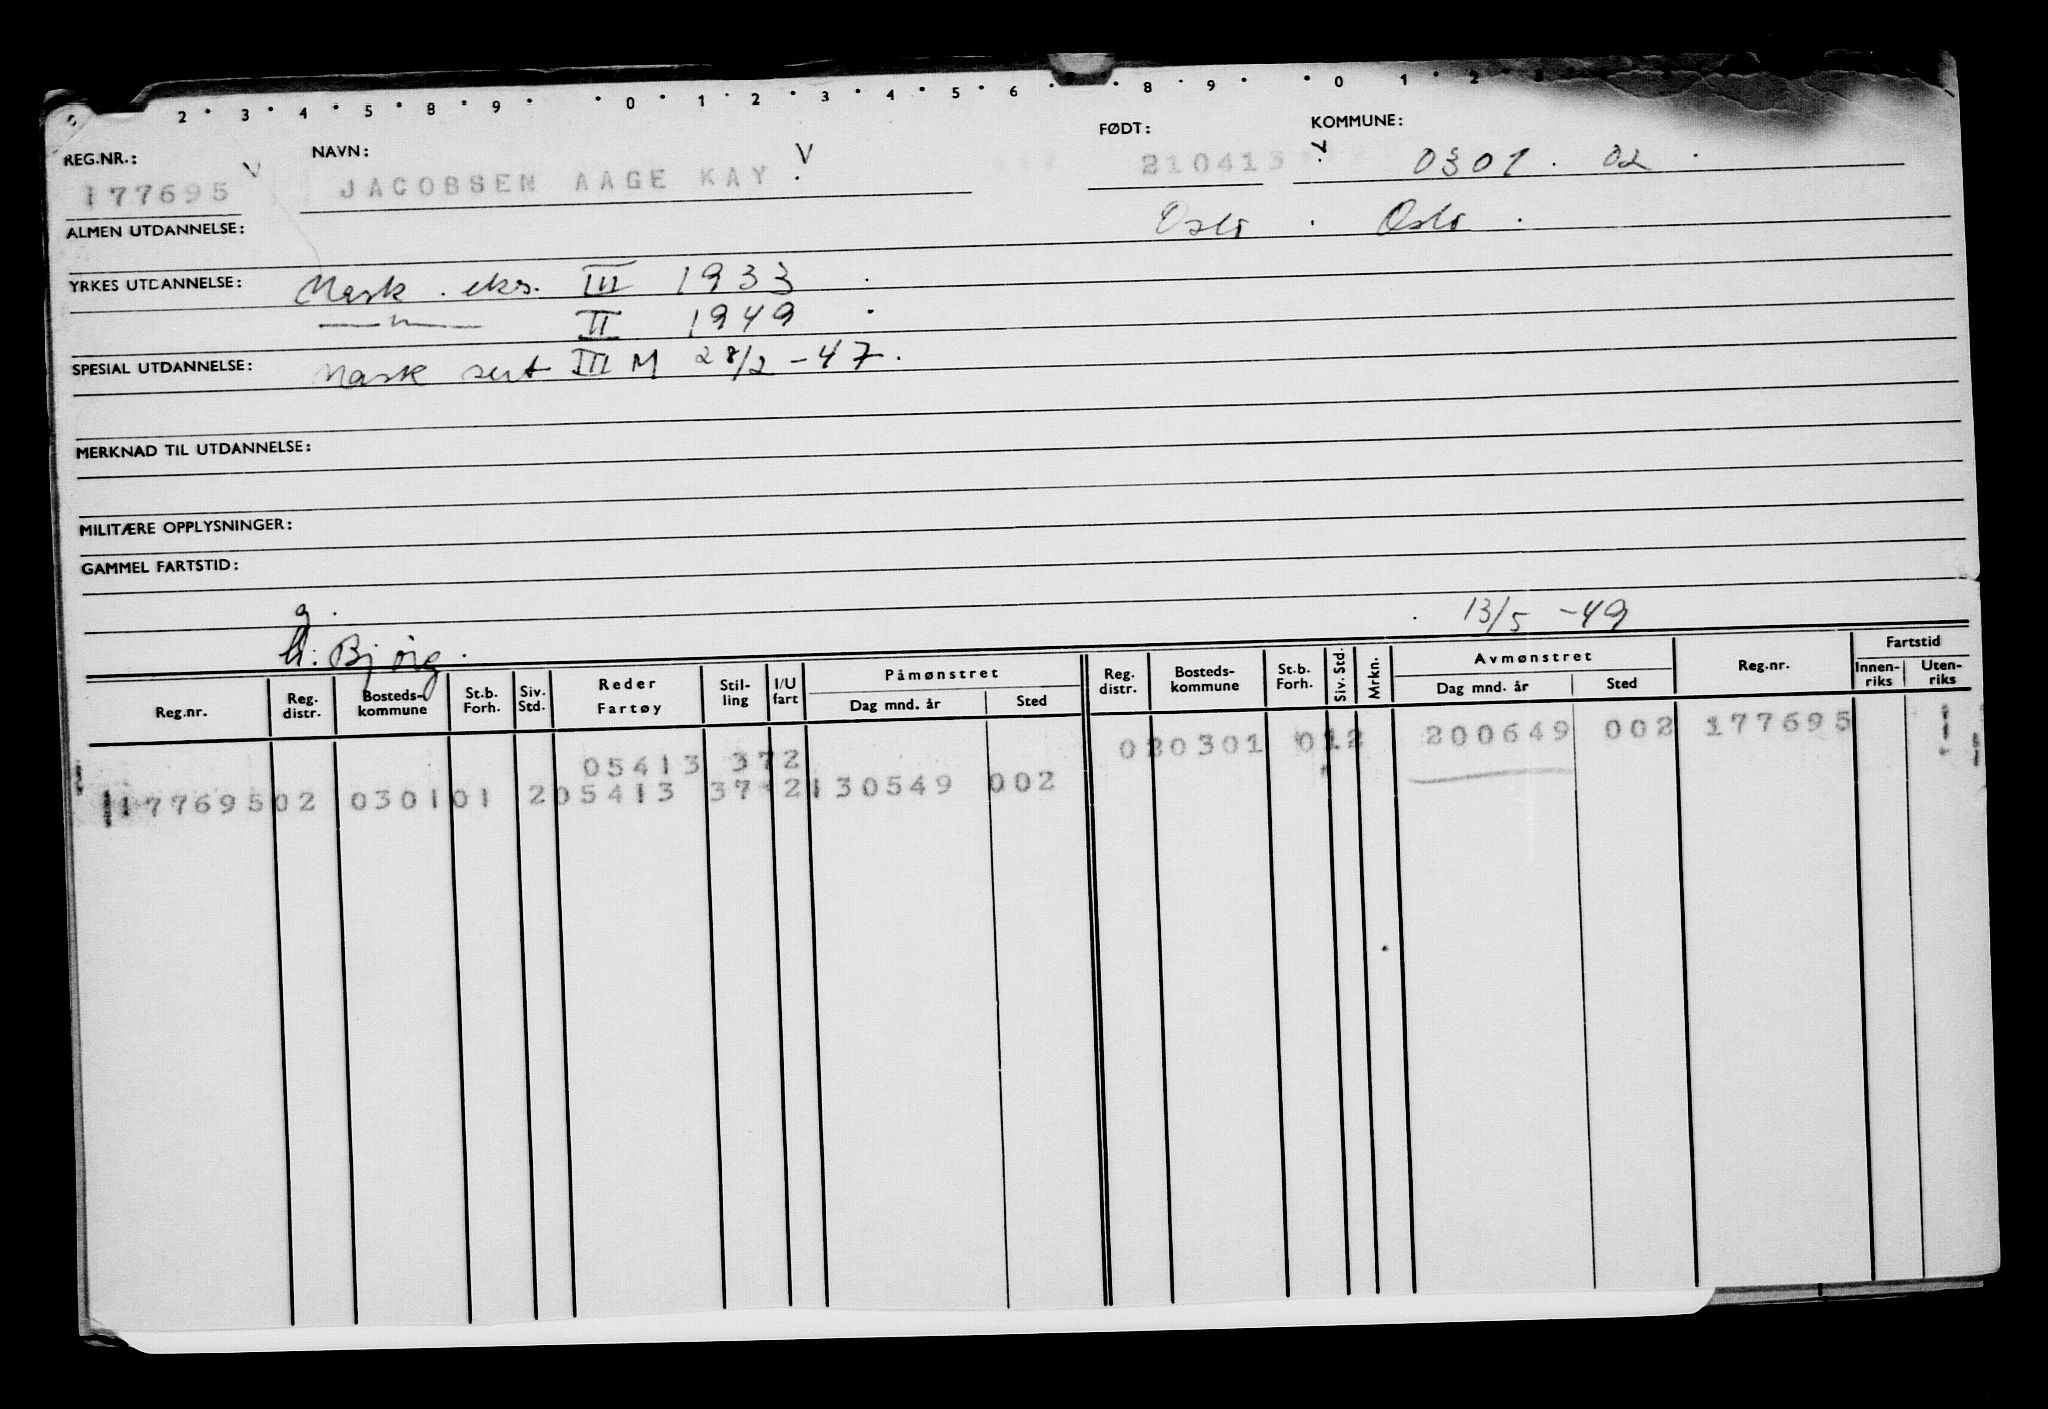 2 · 3 · 4 · 5 · 8 · 9 · · 0 · 1 · 2 · 3 · 4 · 5 · 6 · · 8 · 9 · · 0 · 1 · 2 · 3
REG.NR.: NAVN: V FØDT: KOMMUNE:
177695 V JACOBSEN AAGE KAY . 210413 0301 . 02 .
ALMEN UTDANNELSE: Oslo . Oslo .
YRKES UTDANNELSE: Mask. eks. III 1933 .
—"— II 1949 .
SPESIAL UTDANNELSE: Mask sert III M 28/2 - 47.
MERKNAD TIL UTDANNELSE:
MILITÆRE OPPLYSNINGER:
GAMMEL FARTSTID:
g . . 13/5 - 49
: Bjørg .
Reg.nr. Reg. distr. Bosteds-kommune St.b. Forh. Siv. Std. Reder Fartøy Stil-ling I/U fart Påmønstret Dag mnd. år Sted Reg. distr. Bosteds-kommune St.b. Forh. Siv. Std. Mrkn. Avmønstret Dag mnd. år Sted Reg.nr. Fartstid Innen-riks Uten-riks
05413 372 020301 012 200649 002 177695 1
17769502 030101 205413 37 2130549 002